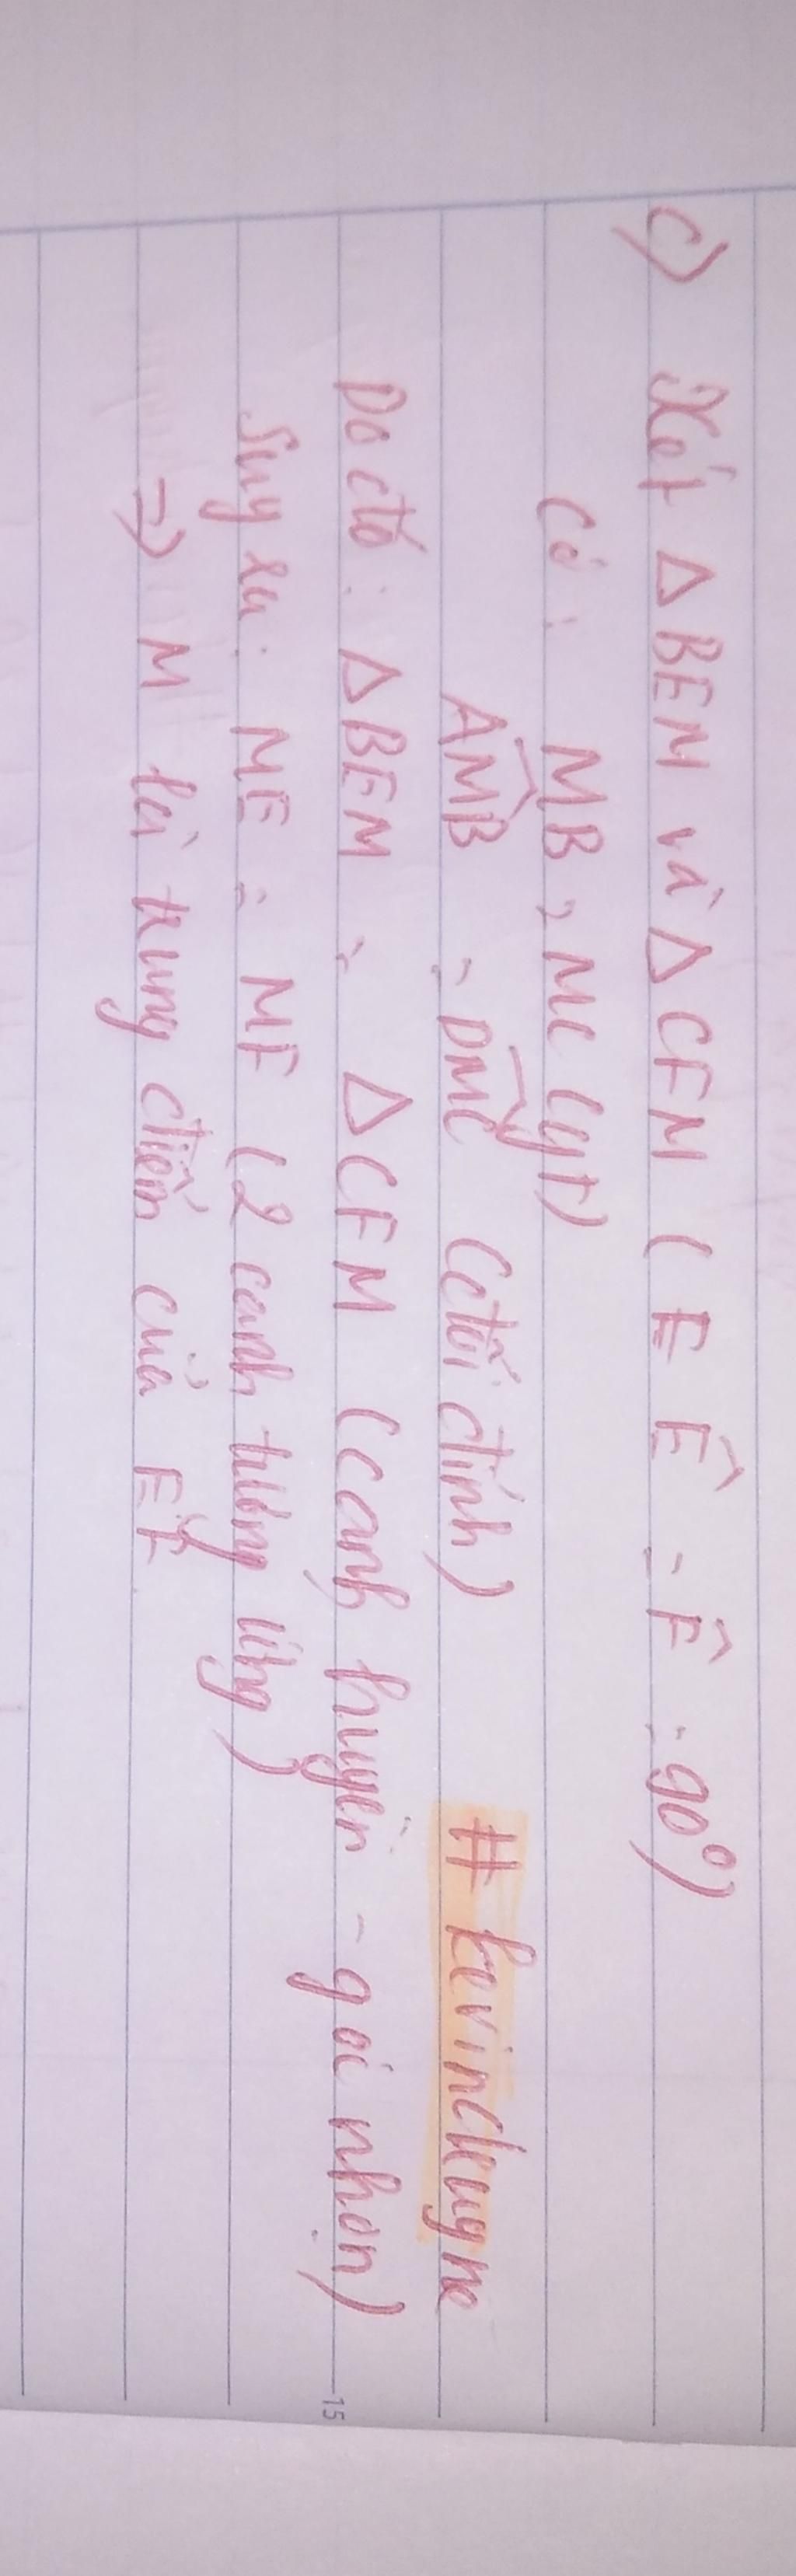 c) Xét Δ BEM và Δ CFM ( E Ê = F̂ = 90°)
Có : MB = MC (gt)
AMB = DMC (đối đỉnh)
# kevindeugne
Do đó : Δ BEM = Δ CFM (cạnh huyền - góc nhọn)
15
Suy ra : ME = MF (2 cạnh tương ứng)
=> M là trung điểm của EF